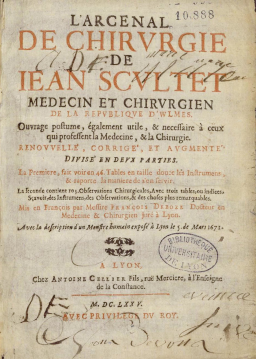 10.888
L'ARCENAL
DE CHIRVRGIE
DE
IEAN SCVLTET
MEDECIN ET CHIRVRGIEN
DE LA REPVBLIQVE D'VLMES.
Ouvrage postume, également utile, & necessaire à ceux
qui professent la Medecine, & la Chirurgie.
RENOVVELLÉ, CORRIGÉ, ET AUGMENTÉ
DIVISÉ EN DEVX PARTIES.
La Premiere, fait voir en 46. Tables en taille douce les Instrumens,
& la maniere de s'en servir.
La seconde contient 103. Observations Chirurgicales, Avec trois tables, ou indices,
des Instrumens, des Observations, & des choses plus remarquables.
Mis en François par Messire FRANÇOIS DEBOZE Docteur en
Medecine & Chirurgien juré à Lyon.
Avec la description d'un Monstre humain exposé à Lyon le 5. de Mars 1671.
A LYON,
Chez ANTOINE CELLIER Fils, ruë Merciere, à l'Enseigne
de la Constance.
M. DC. LXXV.
AVEC PRIVILEGE DU ROY.
BIBLIOTHEQUE
UNIVERSITAIRE